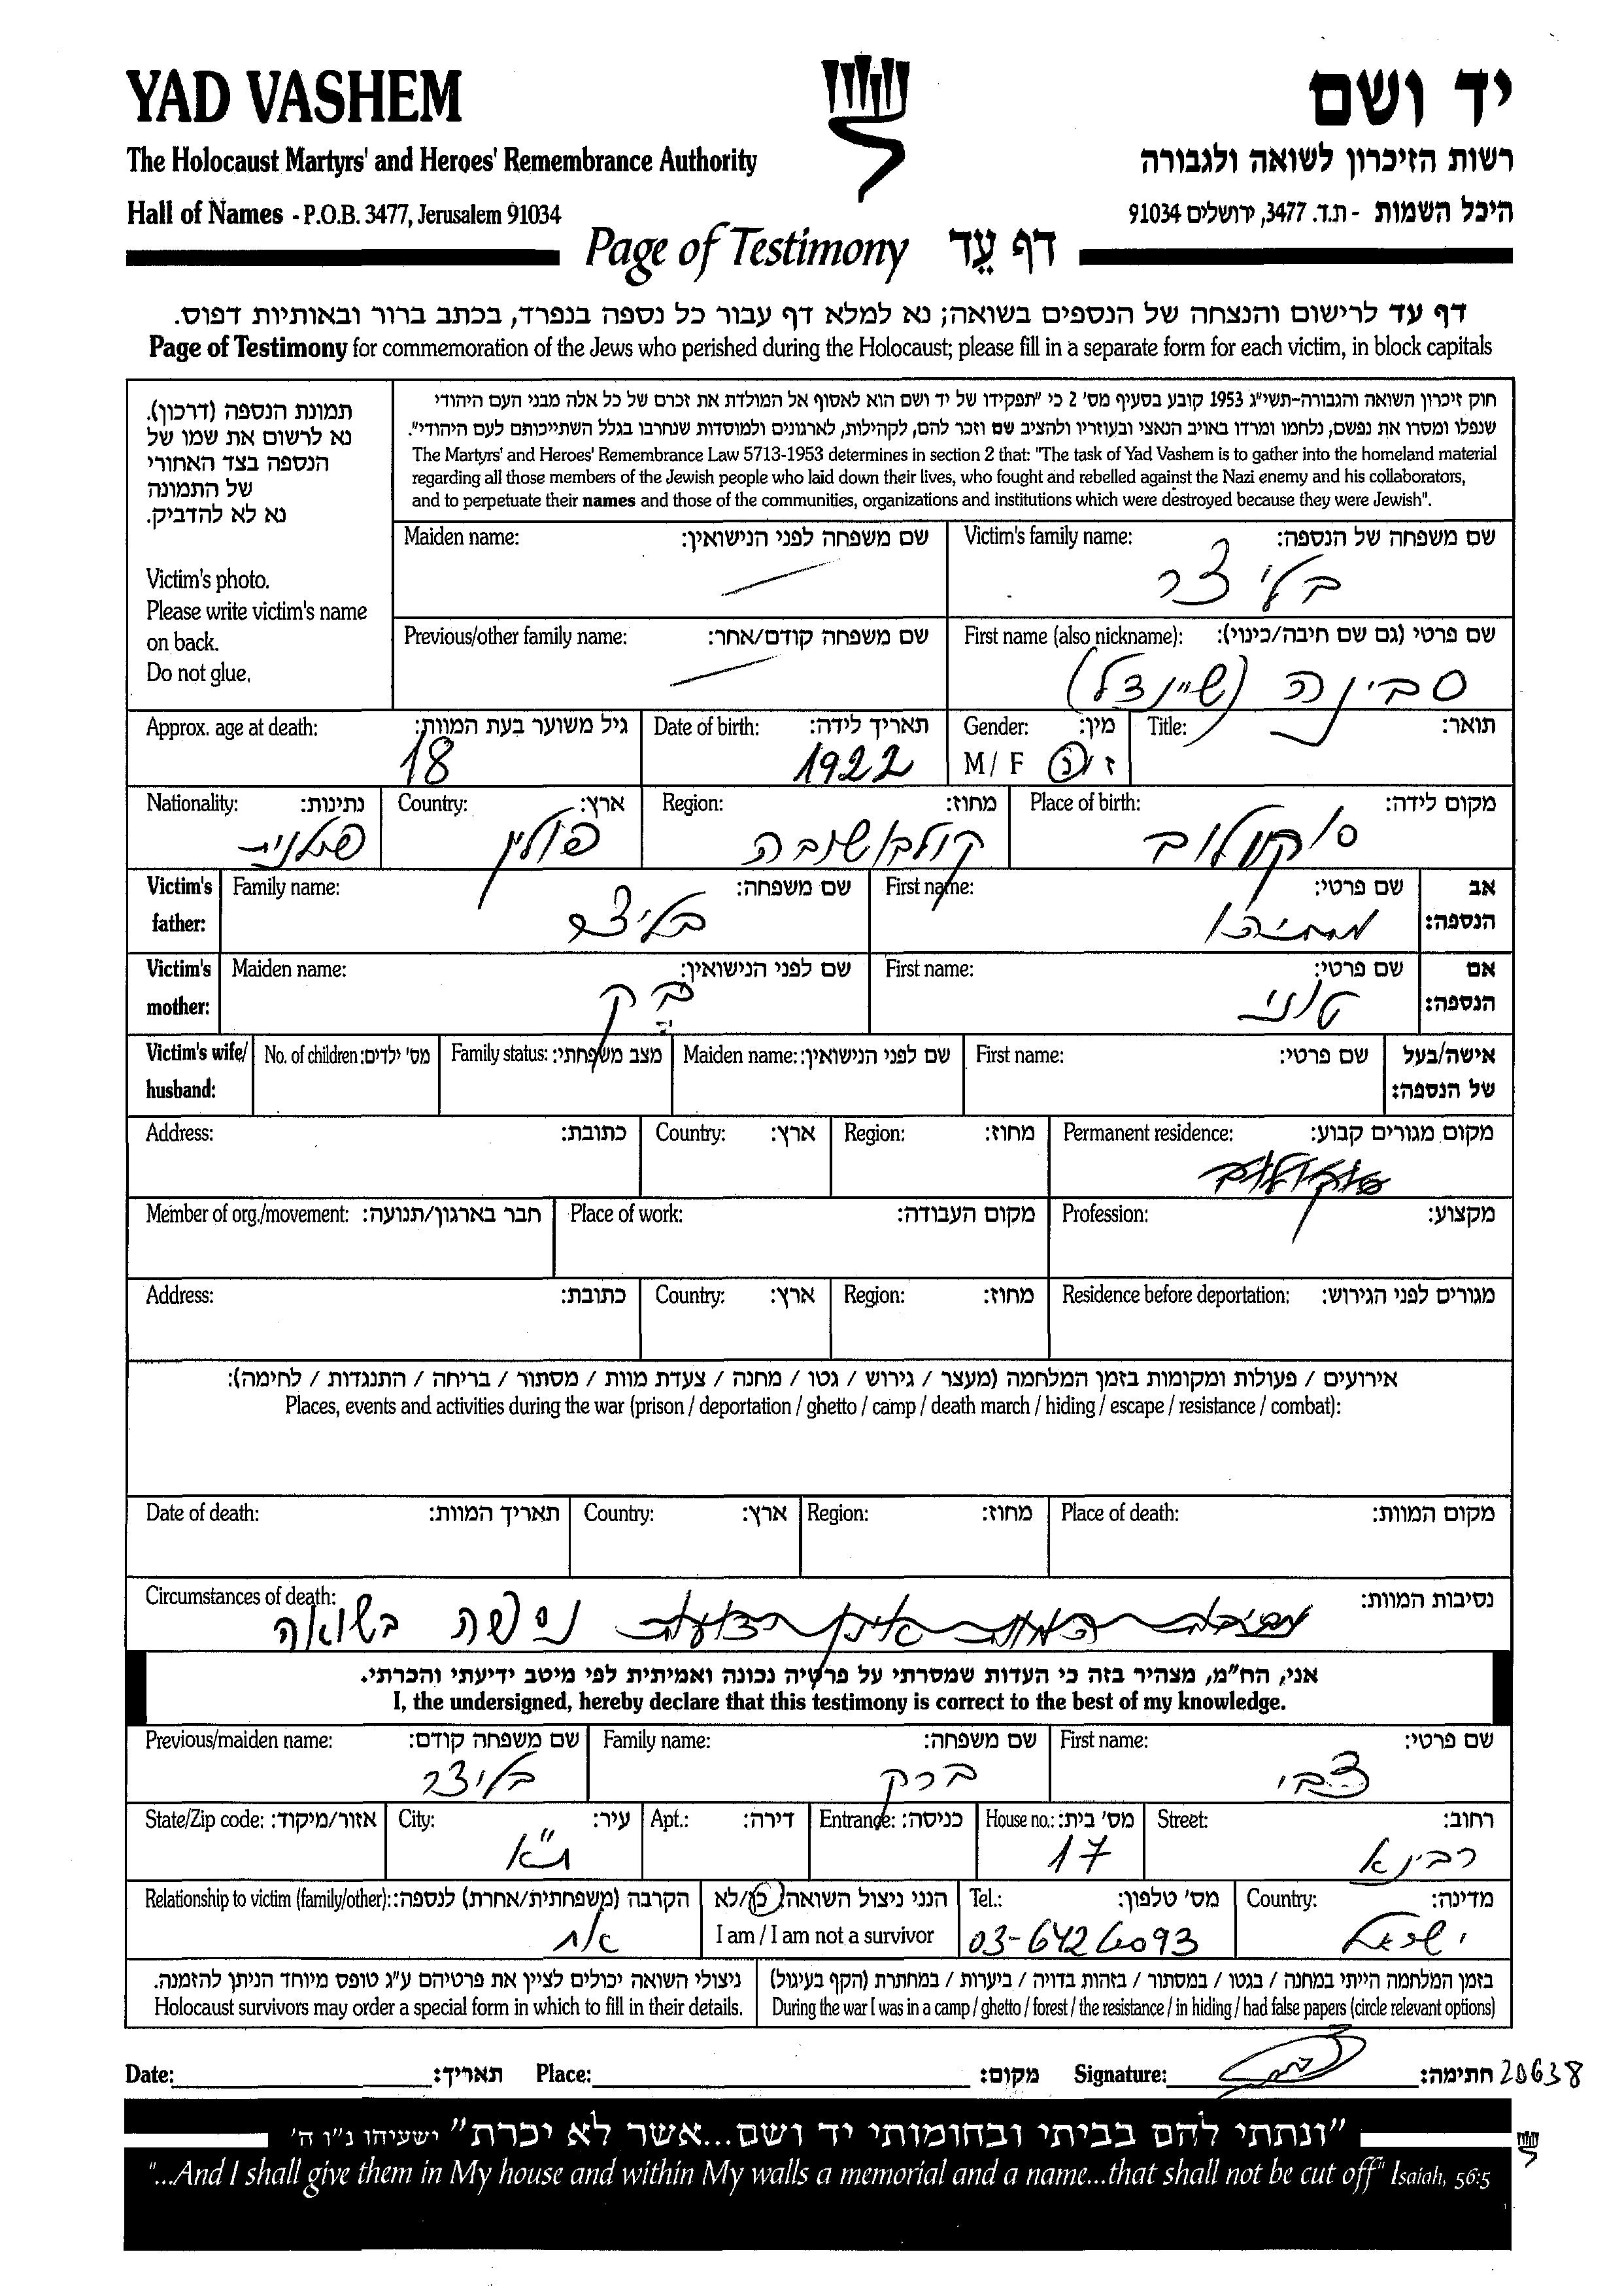 YAD VASHEM
יד ושם
The Holocaust Martyrs' and Heroes' Remembrance Authority
רשות הזיכרון לשואה ולגבורה
Hall of Names - P.O.B. 3477, Jerusalem 91034
היכל השמות - ת.ד. 3477, ירושלים 91034
Page of Testimony דף עֵד
דף עד לרישום והנצחה של הנספים בשואה; נא למלא דף עבור כל נספה בנפרד, בכתב ברור ובאותיות דפוס.
Page of Testimony for commemoration of the Jews who perished during the Holocaust; please fill in a separate form for each victim, in block capitals
תמונת הנספה (דרכון).
נא לרשום את שמו של
הנספה בצד האחורי
של התמונה
נא לא להדביק.
Victim's photo.
Please write victim's name
on back.
Do not glue.
חוק זיכרון השואה והגבורה-תשי"ג 1953 קובע בסעיף מס' 2 כי "תפקידו של יד ושם הוא לאסוף אל המולדת את זכרם של כל אלה מבני העם היהודי
שנפלו ומסרו את נפשם, נלחמו ומרדו באויב הנאצי ובעוזריו ולהציב שם וזכר להם, לקהילות, לארגונים ולמוסדות שנחרבו בגלל השתייכותם לעם היהודי".
The Martyrs' and Heroes' Remembrance Law 5713-1953 determines in section 2 that: "The task of Yad Vashem is to gather into the homeland material
regarding all those members of the Jewish people who laid down their lives, who fought and rebelled against the Nazi enemy and his collaborators,
and to perpetuate their names and those of the communities, organizations and institutions which were destroyed because they were Jewish".
Maiden name: שם משפחה לפני הנישואין:
Victim's family name: שם משפחה של הנספה:
בליצר
Previous/other family name: שם משפחה קודם/אחר:
First name (also nickname): שם פרטי (גם שם חיבה/כינוי):
סבינה (שיינדל)
Approx. age at death: גיל משוער בעת המוות:
18
Date of birth: תאריך לידה:
1922
Gender: מין:
M / F ז/נ
Title: תואר:
Nationality: נתינות:
פולנית
Country: ארץ:
פולין
Region: מחוז:
קולבושובה
Place of birth: מקום לידה:
סוקולוב
Victim's father: Family name: שם משפחה:
בליצר
First name: שם פרטי:
אב הנספה:
מתתיהו
Victim's mother: Maiden name: שם לפני הנישואין:
בק
First name: שם פרטי:
אם הנספה:
טוני
Victim's wife/ husband: No. of children: מס' ילדים: Family status: מצב משפחתי: Maiden name: שם לפני הנישואין: First name: שם פרטי: אישה/בעל של הנספה:
Address: כתובת: Country: ארץ: Region: מחוז: Permanent residence: מקום מגורים קבוע:
Member of org./movement: חבר בארגון/תנועה: Place of work: מקום העבודה: Profession: מקצוע:
Address: כתובת: Country: ארץ: Region: מחוז: Residence before deportation: מגורים לפני הגירוש:
אירועים / פעולות ומקומות בזמן המלחמה (מעצר / גירוש / גטו / מחנה / צעדת מוות / מסתור / בריחה / התנגדות / לחימה):
Places, events and activities during the war (prison / deportation / ghetto / camp / death march / hiding / escape / resistance / combat):
Date of death: תאריך המוות: Country: ארץ: Region: מחוז: Place of death: מקום המוות:
Circumstances of death: נסיבות המוות:
ניספה בשואה
אני, הח"מ, מצהיר בזה כי העדות שמסרתי על פרטיה נכונה ואמיתית לפי מיטב ידיעתי והכרתי.
I, the undersigned, hereby declare that this testimony is correct to the best of my knowledge.
Previous/maiden name: שם משפחה קודם:
בליצר
Family name: שם משפחה:
ברק
First name: שם פרטי:
צבי
State/Zip code: אזור/מיקוד: City: עיר:
ת"א
Apt.: דירה: Entrance: כניסה: House no.: מס' בית:
17
Street: רחוב:
רבינא
Relationship to victim (family/other): הקרבה (משפחתית/אחרת) לנספה:
אח
הנני ניצול השואה: כן/לא
I am / I am not a survivor
Tel.: מס' טלפון:
03-6426093
Country: מדינה:
ישראל
ניצולי השואה יכולים לציין את פרטיהם ע"ג טופס מיוחד הניתן להזמנה.
Holocaust survivors may order a special form in which to fill in their details.
בזמן המלחמה הייתי במחנה / בגטו / במסתור / בזהות בדויה / ביערות / במחתרת (הקף בעיגול)
During the war I was in a camp / ghetto / forest / the resistance / in hiding / had false papers (circle relevant options)
Date: תאריך: Place: מקום: Signature: חתימה: 20638
"ונתתי להם בביתי ובחומותי יד ושם...אשר לא יכרת" ישעיהו נ"ו ה'
"...And I shall give them in My house and within My walls a memorial and a name...that shall not be cut off" Isaiah, 56:5